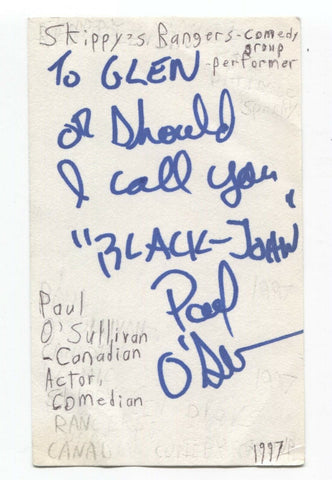 Skippy's Rangers - comedy
group
- performer
To GLEN
or should
I call you
"BLACK-JOHN"
Paul
O'Su
Paul
O'Sullivan
- Canadian
Actor,
Comedian
1997